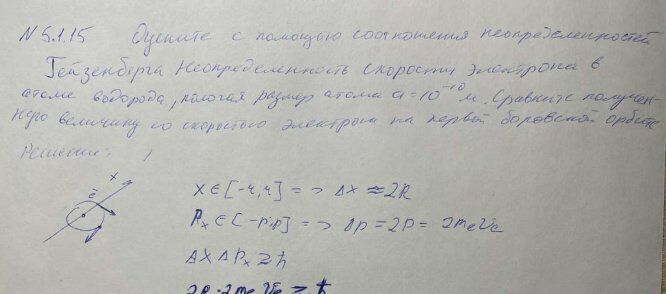 N 5.1.15 Оцените с помощью соотношения неопределенностей
Гейзенберга неопределенность скорости электрона в
атоме водорода, полагая размер атома a=10⁻¹⁰ м. Сравните получен-
ную величину со скоростью электрона на первой боровской орбите
Решение:
x
e⁻
X ∈ [-r, r] => Δx ≈ 2R
Pₓ ∈ [-p; p] => Δp = 2p = 2meVe
ΔX ΔPₓ ≥ ħ
2R · 2me Ve ≥ ħ